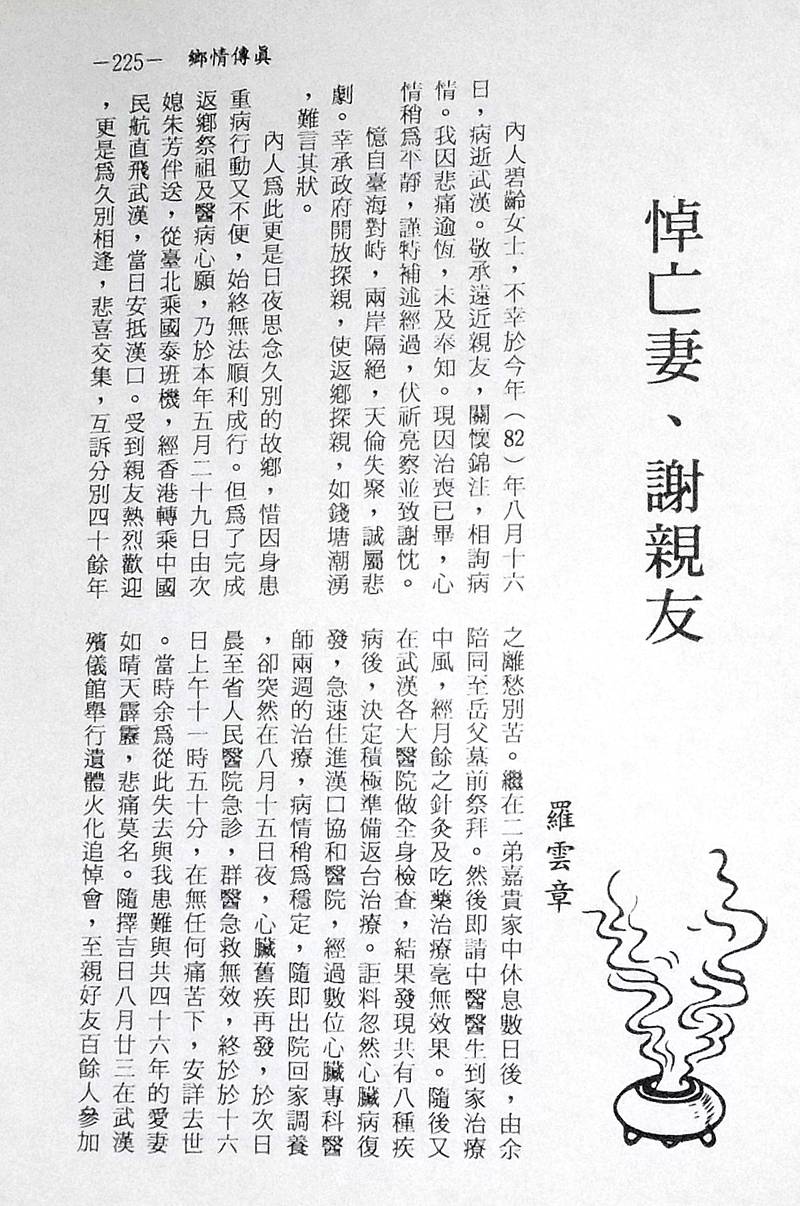 鄉情傳眞
—225—
悼亡妻、謝親友
羅雲章
內人碧齡女士，不幸於今年（82）年八月十六
日，病逝武漢。敬承遠近親友，關懷錦注，相詢病
情。我因悲痛逾恆，未及奉知。現因治喪已畢，心
情稍爲平靜，謹特補述經過，伏祈亮察並致謝忱。
憶自臺海對峙，兩岸隔絕，天倫失聚，誠屬悲
劇。幸承政府開放探親，使返鄉探親，如錢塘潮湧
，難言其狀。
內人爲此更是日夜思念久別的故鄉，惜因身患
重病行動又不便，始終無法順利成行。但爲了完成
返鄉祭祖及醫病心願，乃於本年五月二十九日由次
媳朱芳伴送，從臺北乘國泰班機，經香港轉乘中國
民航直飛武漢，當日安抵漢口。受到親友熱烈歡迎
，更是爲久別相逢，悲喜交集，互訴分別四十餘年
之離愁別苦。繼在二弟嘉貴家中休息數日後，由余
陪同至岳父墓前祭拜。然後即請中醫醫生到家治療
中風，經月餘之針灸及吃藥治療毫無效果。隨後又
在武漢各大醫院做全身檢查，結果發現共有八種疾
病後，決定積極準備返台治療。詎料忽然心臟病復
發，急速住進漢口協和醫院，經過數位心臟專科醫
師兩週的治療，病情稍爲穩定，隨即出院回家調養
，卻突然在八月十五日夜，心臟舊疾再發，於次日
晨至省人民醫院急診，群醫急救無效，終於於十六
日上午十一時五十分，在無任何痛苦下，安詳去世
。當時余爲從此失去與我患難與共四十六年的愛妻
如晴天霹靂，悲痛莫名。隨擇吉日八月廿三在武漢
殯儀館舉行遺體火化追悼會，至親好友百餘人參加